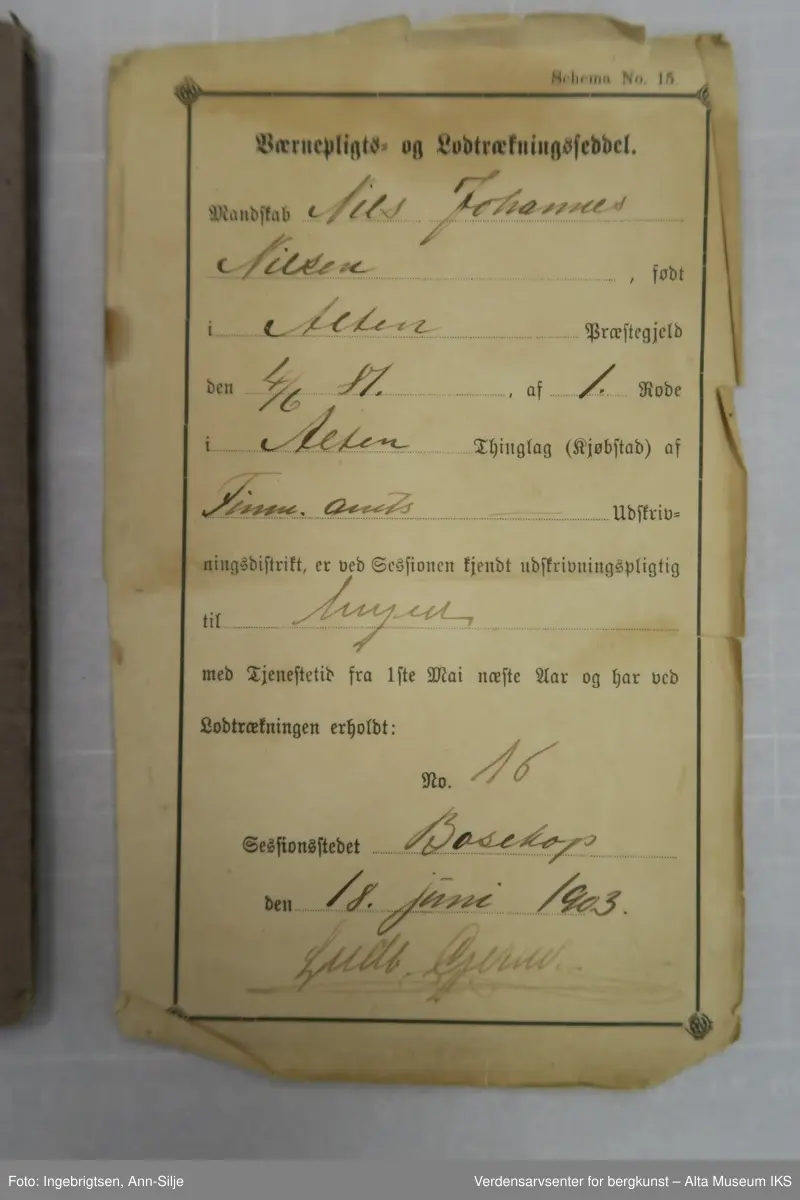 Schema No. 15
Værnepligts- og Lodtrækningsseddel.
Mandskab Nils Johannes
Nilsen, født
i Alten Præstegjeld
den 4/6 81., af 1. Rode
i Alten Thinglag (Kjøbstad) af
Finm. amts Udskriv-
ningsdistrikt, er ved Sessionen kjendt udskrivningspligtig
til
med Tjenestetid fra 1ste Mai næste Aar og har ved
Lodtrækningen erholdt:
No. 16
Sessionsstedet Bosekop
den 18. juni 1903.
Foto: Ingebrigtsen, Ann-Silje
Verdensarvsenter for bergkunst – Alta Museum IKS